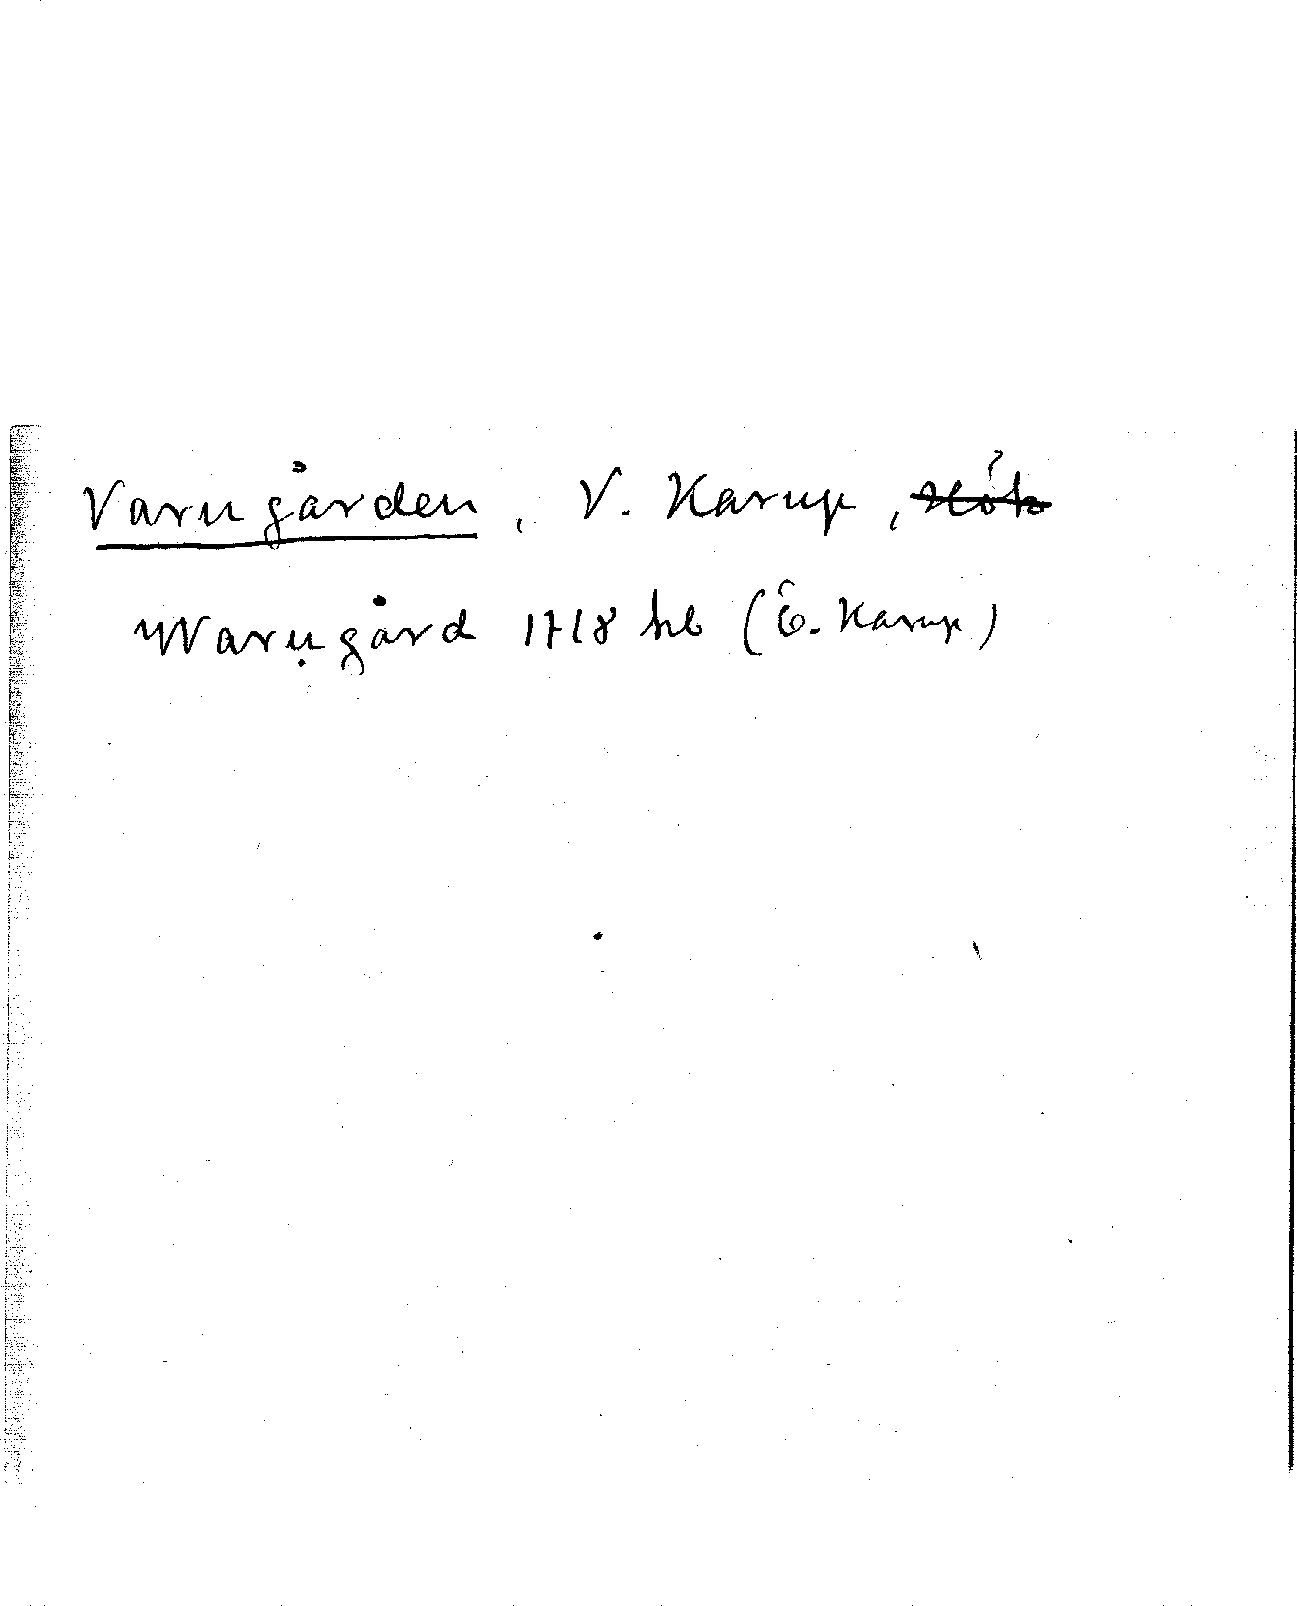 Varugården, V. Karup,
Warụgård 1718 hb (Ö. Karup)